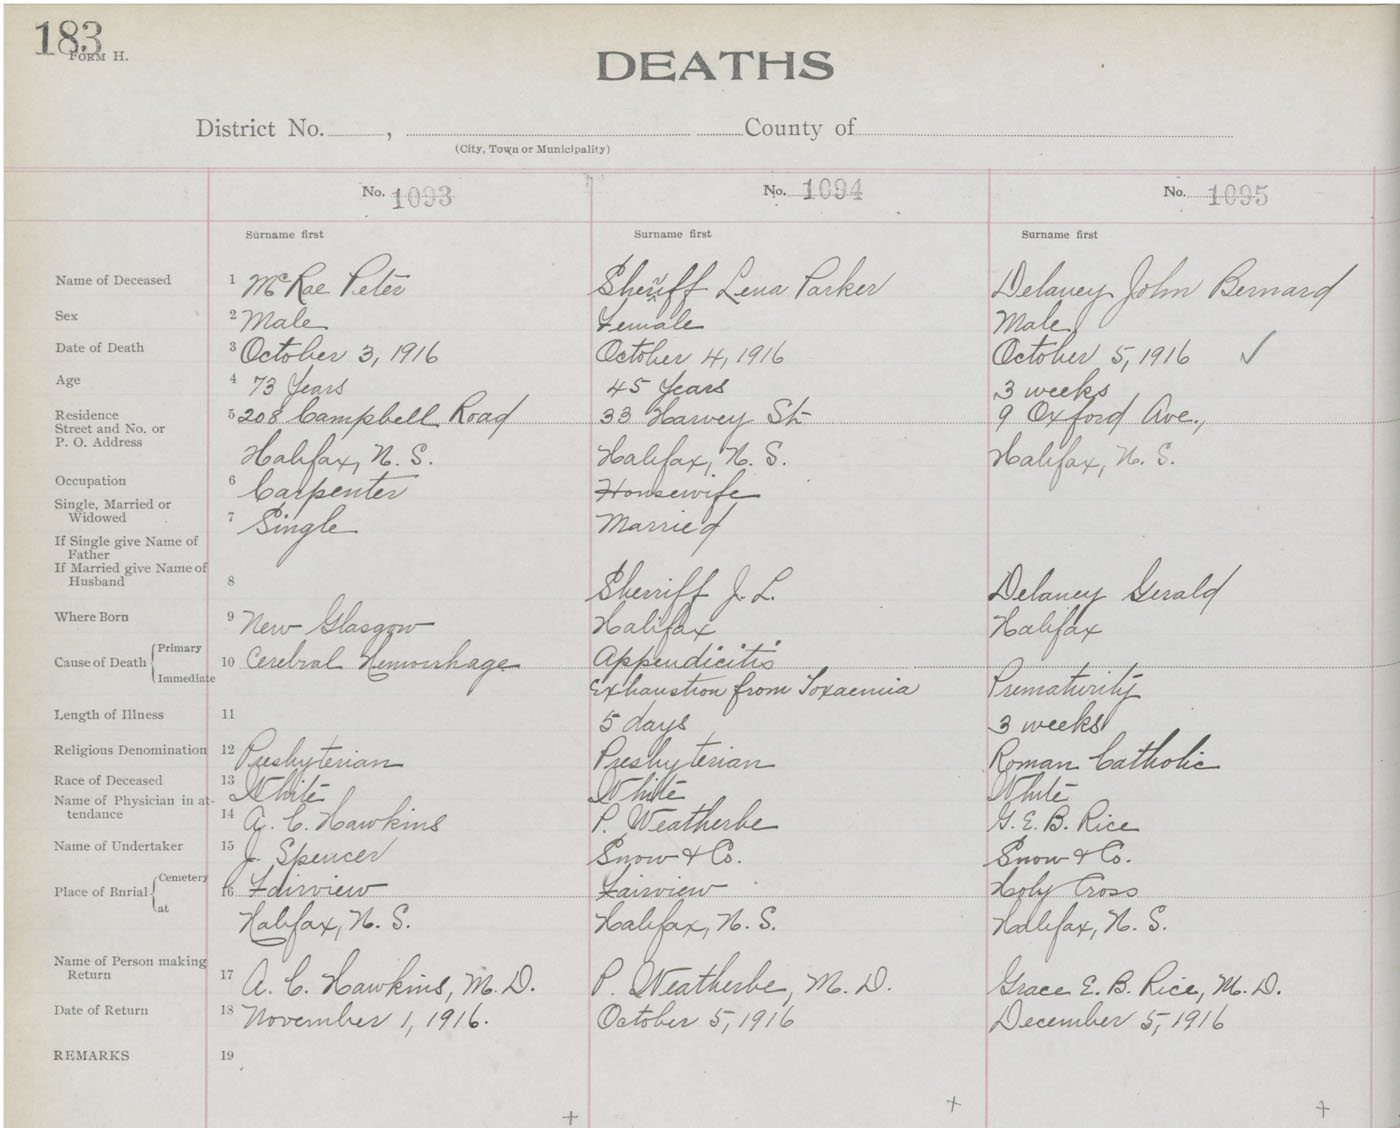 183
FORM H.
DEATHS
District No. , County of
(City, Town or Municipality)
No. 1093 No. 1094 No. 1095
Surname first Surname first Surname first
Name of Deceased 1 McRae Peter Sheriff Lena Parker Delaney John Bernard
Sex 2 Male Female Male
Date of Death 3 October 3, 1916 October 4, 1916 October 5, 1916 ✓
Age 4 73 Years 45 Years 3 weeks
Residence 5 208 Campbell Road 33 Harvey St 9 Oxford Ave.,
Street and No. or
P. O. Address Halifax, N. S. Halifax, N. S. Halifax, N. S.
Occupation 6 Carpenter Housewife
Single, Married or
Widowed 7 Single Married
If Single give Name of
Father
If Married give Name of
Husband 8 Sherriff J. L. Delaney Gerald
Where Born 9 New Glasgow Halifax Halifax
Cause of Death Primary 10 Cerebral Hemorrhage Appendicitis
Immediate Exhaustion from Toxaemia Prematurity
Length of Illness 11 5 days 3 weeks
Religious Denomination 12 Presbyterian Presbyterian Roman Catholic
Race of Deceased 13 White White White
Name of Physician in at-
tendance 14 A. C. Hawkins P. Weatherbe G. E. B. Rice
Name of Undertaker 15 J. Spencer Snow & Co. Snow & Co.
Place of Burial Cemetery 16 Fairview Fairview Holy Cross
at Halifax, N. S. Halifax, N. S. Halifax, N. S.
Name of Person making
Return 17 A. C. Hawkins, M. D. P. Weatherbe, M. D. Grace E. B. Rice, M. D.
Date of Return 18 November 1, 1916. October 5, 1916 December 5, 1916
REMARKS 19
+ + +